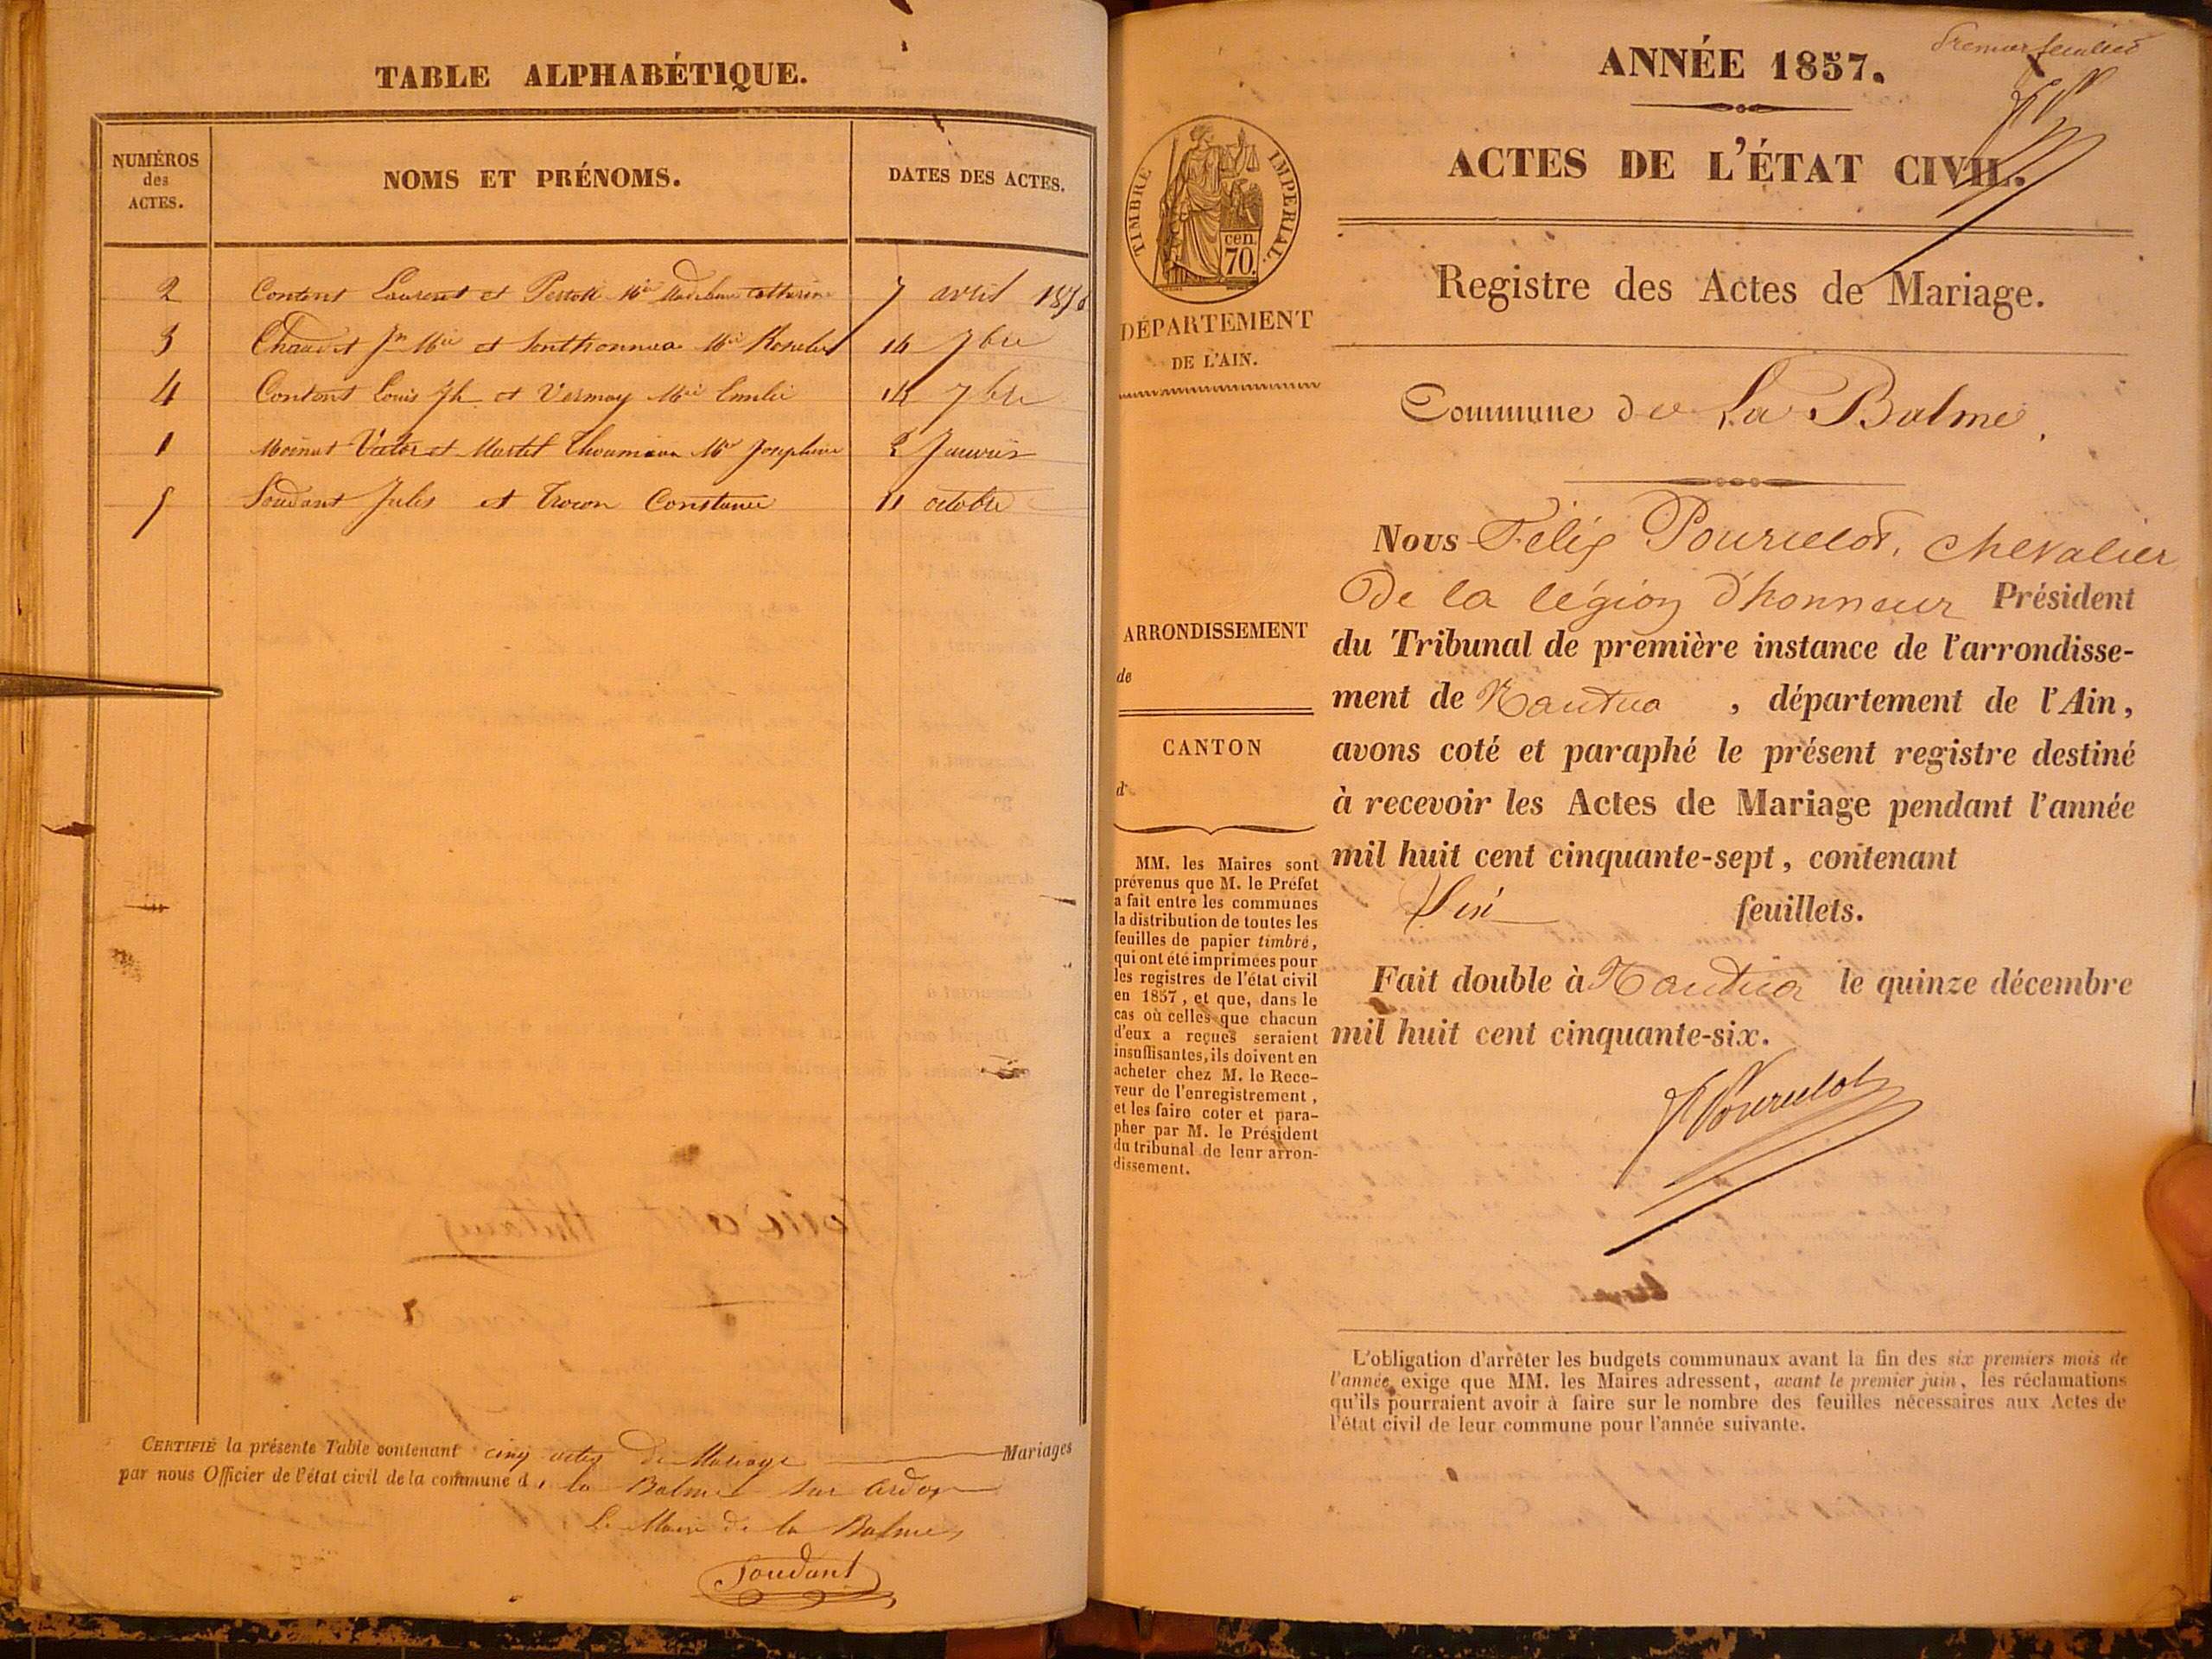 TABLE ALPHABÉTIQUE.
NUMÉROS
des
ACTES.
NOMS ET PRÉNOMS.
DATES DES ACTES.
2 Content Laurent et Mie Madeleine Catherine 7 avril
3 Jn Mie et Mie 14 7bre
4 Content Louis Jh et Vermay Mie Emilie 14 7bre
1 Moinat Victor et Martel Mie Josephine 2 Janvier
5 Soudant Jules et Constance 11 octobre
CERTIFIÉ la présente Table contenant cinq actes de Mariage Mariages
par nous Officier de l'état civil de la commune d la Balme sur
Le Maire de la Balme
Soudant
Premier feuillet
ANNÉE 1857.
ACTES DE L'ÉTAT CIVIL.
TIMBRE IMPERIAL.
cen.
70.
DÉPARTEMENT
DE L'AIN.
Registre des Actes de Mariage.
Commune de La Balme.
Nous Félix Pourcelot, chevalier
De la légion d'honneur Président
du Tribunal de première instance de l'arrondisse-
ment de Nantua, département de l'Ain,
avons coté et paraphé le présent registre destiné
à recevoir les Actes de Mariage pendant l'année
mil huit cent cinquante-sept, contenant
Six feuillets.
Fait double à Nantua le quinze décembre
mil huit cent cinquante-six.
FPourcelot
ARRONDISSEMENT
de
CANTON
d'
MM. les Maires sont
prévenus que M. le Préfet
a fait entre les communes
la distribution de toutes les
feuilles de papier timbré,
qui ont été imprimées pour
les registres de l'état civil
en 1857, et que, dans le
cas où celles que chacun
d'eux a reçues seraient
insuffisantes, ils doivent en
acheter chez M. le Rece-
veur de l'enregistrement,
et les faire coter et para-
pher par M. le Président
du tribunal de leur arron-
dissement.
L'obligation d'arrêter les budgets communaux avant la fin des six premiers mois de
l'année, exige que MM. les Maires adressent, avant le premier juin, les réclamations
qu'ils pourraient avoir à faire sur le nombre des feuilles nécessaires aux Actes de
l'état civil de leur commune pour l'année suivante.